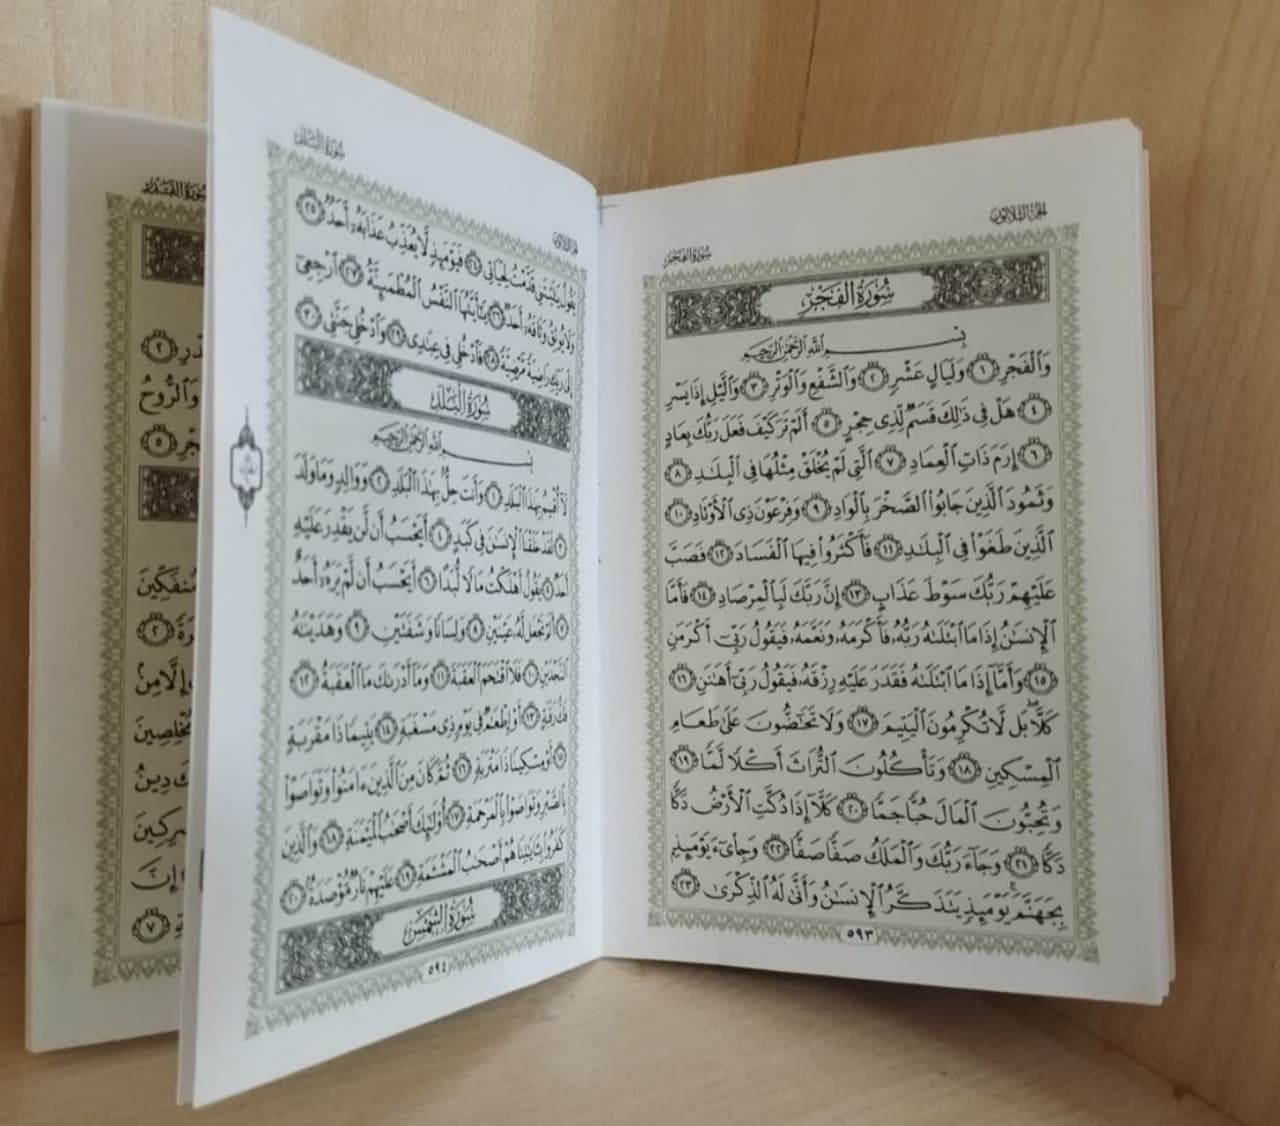 الجزء الثلاثون
سورة الفجر
سُورَةُ الفَجْرِ
بِسْمِ ٱللَّهِ ٱلرَّحْمَٰنِ ٱلرَّحِيمِ
وَٱلْفَجْرِ ١ وَلَيَالٍ عَشْرٍ ٢ وَٱلشَّفْعِ وَٱلْوَتْرِ ٣ وَٱلَّيْلِ إِذَا يَسْرِ
٤ هَلْ فِي ذَٰلِكَ قَسَمٌ لِّذِي حِجْرٍ ٥ أَلَمْ تَرَ كَيْفَ فَعَلَ رَبُّكَ بِعَادٍ
٦ إِرَمَ ذَاتِ ٱلْعِمَادِ ٧ ٱلَّتِي لَمْ يُخْلَقْ مِثْلُهَا فِي ٱلْبِلَٰدِ ٨
وَثَمُودَ ٱلَّذِينَ جَابُوا۟ ٱلصَّخْرَ بِٱلْوَادِ ٩ وَفِرْعَوْنَ ذِي ٱلْأَوْتَادِ ١٠
ٱلَّذِينَ طَغَوْا۟ فِي ٱلْبِلَٰدِ ١١ فَأَكْثَرُوا۟ فِيهَا ٱلْفَسَادَ ١٢ فَصَبَّ
عَلَيْهِمْ رَبُّكَ سَوْطَ عَذَابٍ ١٣ إِنَّ رَبَّكَ لَبِٱلْمِرْصَادِ ١٤ فَأَمَّا
ٱلْإِنسَٰنُ إِذَا مَا ٱبْتَلَىٰهُ رَبُّهُۥ فَأَكْرَمَهُۥ وَنَعَّمَهُۥ فَيَقُولُ رَبِّىٓ أَكْرَمَنِ
١٥ وَأَمَّآ إِذَا مَا ٱبْتَلَىٰهُ فَقَدَرَ عَلَيْهِ رِزْقَهُۥ فَيَقُولُ رَبِّىٓ أَهَٰنَنِ ١٦
كَلَّا ۖ بَل لَّا تُكْرِمُونَ ٱلْيَتِيمَ ١٧ وَلَا تَحَٰٓضُّونَ عَلَىٰ طَعَامِ
ٱلْمِسْكِينِ ١٨ وَتَأْكُلُونَ ٱلتُّرَاثَ أَكْلًا لَّمًّا ١٩
وَتُحِبُّونَ ٱلْمَالَ حُبًّا جَمًّا ٢٠ كَلَّآ إِذَا دُكَّتِ ٱلْأَرْضُ دَكًّا
دَكًّا ٢١ وَجَآءَ رَبُّكَ وَٱلْمَلَكُ صَفًّا صَفًّا ٢٢ وَجِا۟ىٓءَ يَوْمَئِذٍۭ
بِجَهَنَّمَ ۚ يَوْمَئِذٍ يَتَذَكَّرُ ٱلْإِنسَٰنُ وَأَنَّىٰ لَهُ ٱلذِّكْرَىٰ ٢٣
٥٩٣
سورة البلد
يَقُولُ يَٰلَيْتَنِى قَدَّمْتُ لِحَيَاتِى ٢٤ فَيَوْمَئِذٍ لَّا يُعَذِّبُ عَذَابَهُۥٓ أَحَدٌ ٢٥
وَلَا يُوثِقُ وَثَاقَهُۥٓ أَحَدٌ ٢٦ يَٰٓأَيَّتُهَا ٱلنَّفْسُ ٱلْمُطْمَئِنَّةُ ٢٧ ٱرْجِعِىٓ
إِلَىٰ رَبِّكِ رَاضِيَةً مَّرْضِيَّةً ٢٨ فَٱدْخُلِى فِى عِبَٰدِى ٢٩ وَٱدْخُلِى جَنَّتِى ٣٠
سُورَةُ البَلَدِ
بِسْمِ ٱللَّهِ ٱلرَّحْمَٰنِ ٱلرَّحِيمِ
لَآ أُقْسِمُ بِهَٰذَا ٱلْبَلَدِ ١ وَأَنتَ حِلٌّۢ بِهَٰذَا ٱلْبَلَدِ ٢ وَوَالِدٍ وَمَا وَلَدَ
٣ لَقَدْ خَلَقْنَا ٱلْإِنسَٰنَ فِى كَبَدٍ ٤ أَيَحْسَبُ أَن لَّن يَقْدِرَ عَلَيْهِ
أَحَدٌ ٥ يَقُولُ أَهْلَكْتُ مَالًا لُّبَدًا ٦ أَيَحْسَبُ أَن لَّمْ يَرَهُۥٓ أَحَدٌ
٧ أَلَمْ نَجْعَل لَّهُۥ عَيْنَيْنِ ٨ وَلِسَانًا وَشَفَتَيْنِ ٩ وَهَدَيْنَٰهُ
ٱلنَّجْدَيْنِ ١٠ فَلَا ٱقْتَحَمَ ٱلْعَقَبَةَ ١١ وَمَآ أَدْرَىٰكَ مَا ٱلْعَقَبَةُ ١٢
فَكُّ رَقَبَةٍ ١٣ أَوْ إِطْعَٰمٌ فِى يَوْمٍ ذِى مَسْغَبَةٍ ١٤ يَتِيمًا ذَا مَقْرَبَةٍ
١٥ أَوْ مِسْكِينًا ذَا مَتْرَبَةٍ ١٦ ثُمَّ كَانَ مِنَ ٱلَّذِينَ ءَامَنُوا۟ وَتَوَاصَوْا۟
بِٱلصَّبْرِ وَتَوَاصَوْا۟ بِٱلْمَرْحَمَةِ ١٧ أُو۟لَٰٓئِكَ أَصْحَٰبُ ٱلْمَيْمَنَةِ ١٨ وَٱلَّذِينَ
كَفَرُوا۟ بِـَٔايَٰتِنَا هُمْ أَصْحَٰبُ ٱلْمَشْـَٔمَةِ ١٩ عَلَيْهِمْ نَارٌ مُّؤْصَدَةٌۢ ٢٠
سُورَةُ الشَّمْسِ
٥٩٤
سورة القدر
٢
وَٱلرُّوحُ
٥
مُنفَكِّينَ
٢
إِلَّا مِنۢ
مُخْلِصِينَ
دِينُ
إِنَّ
٧